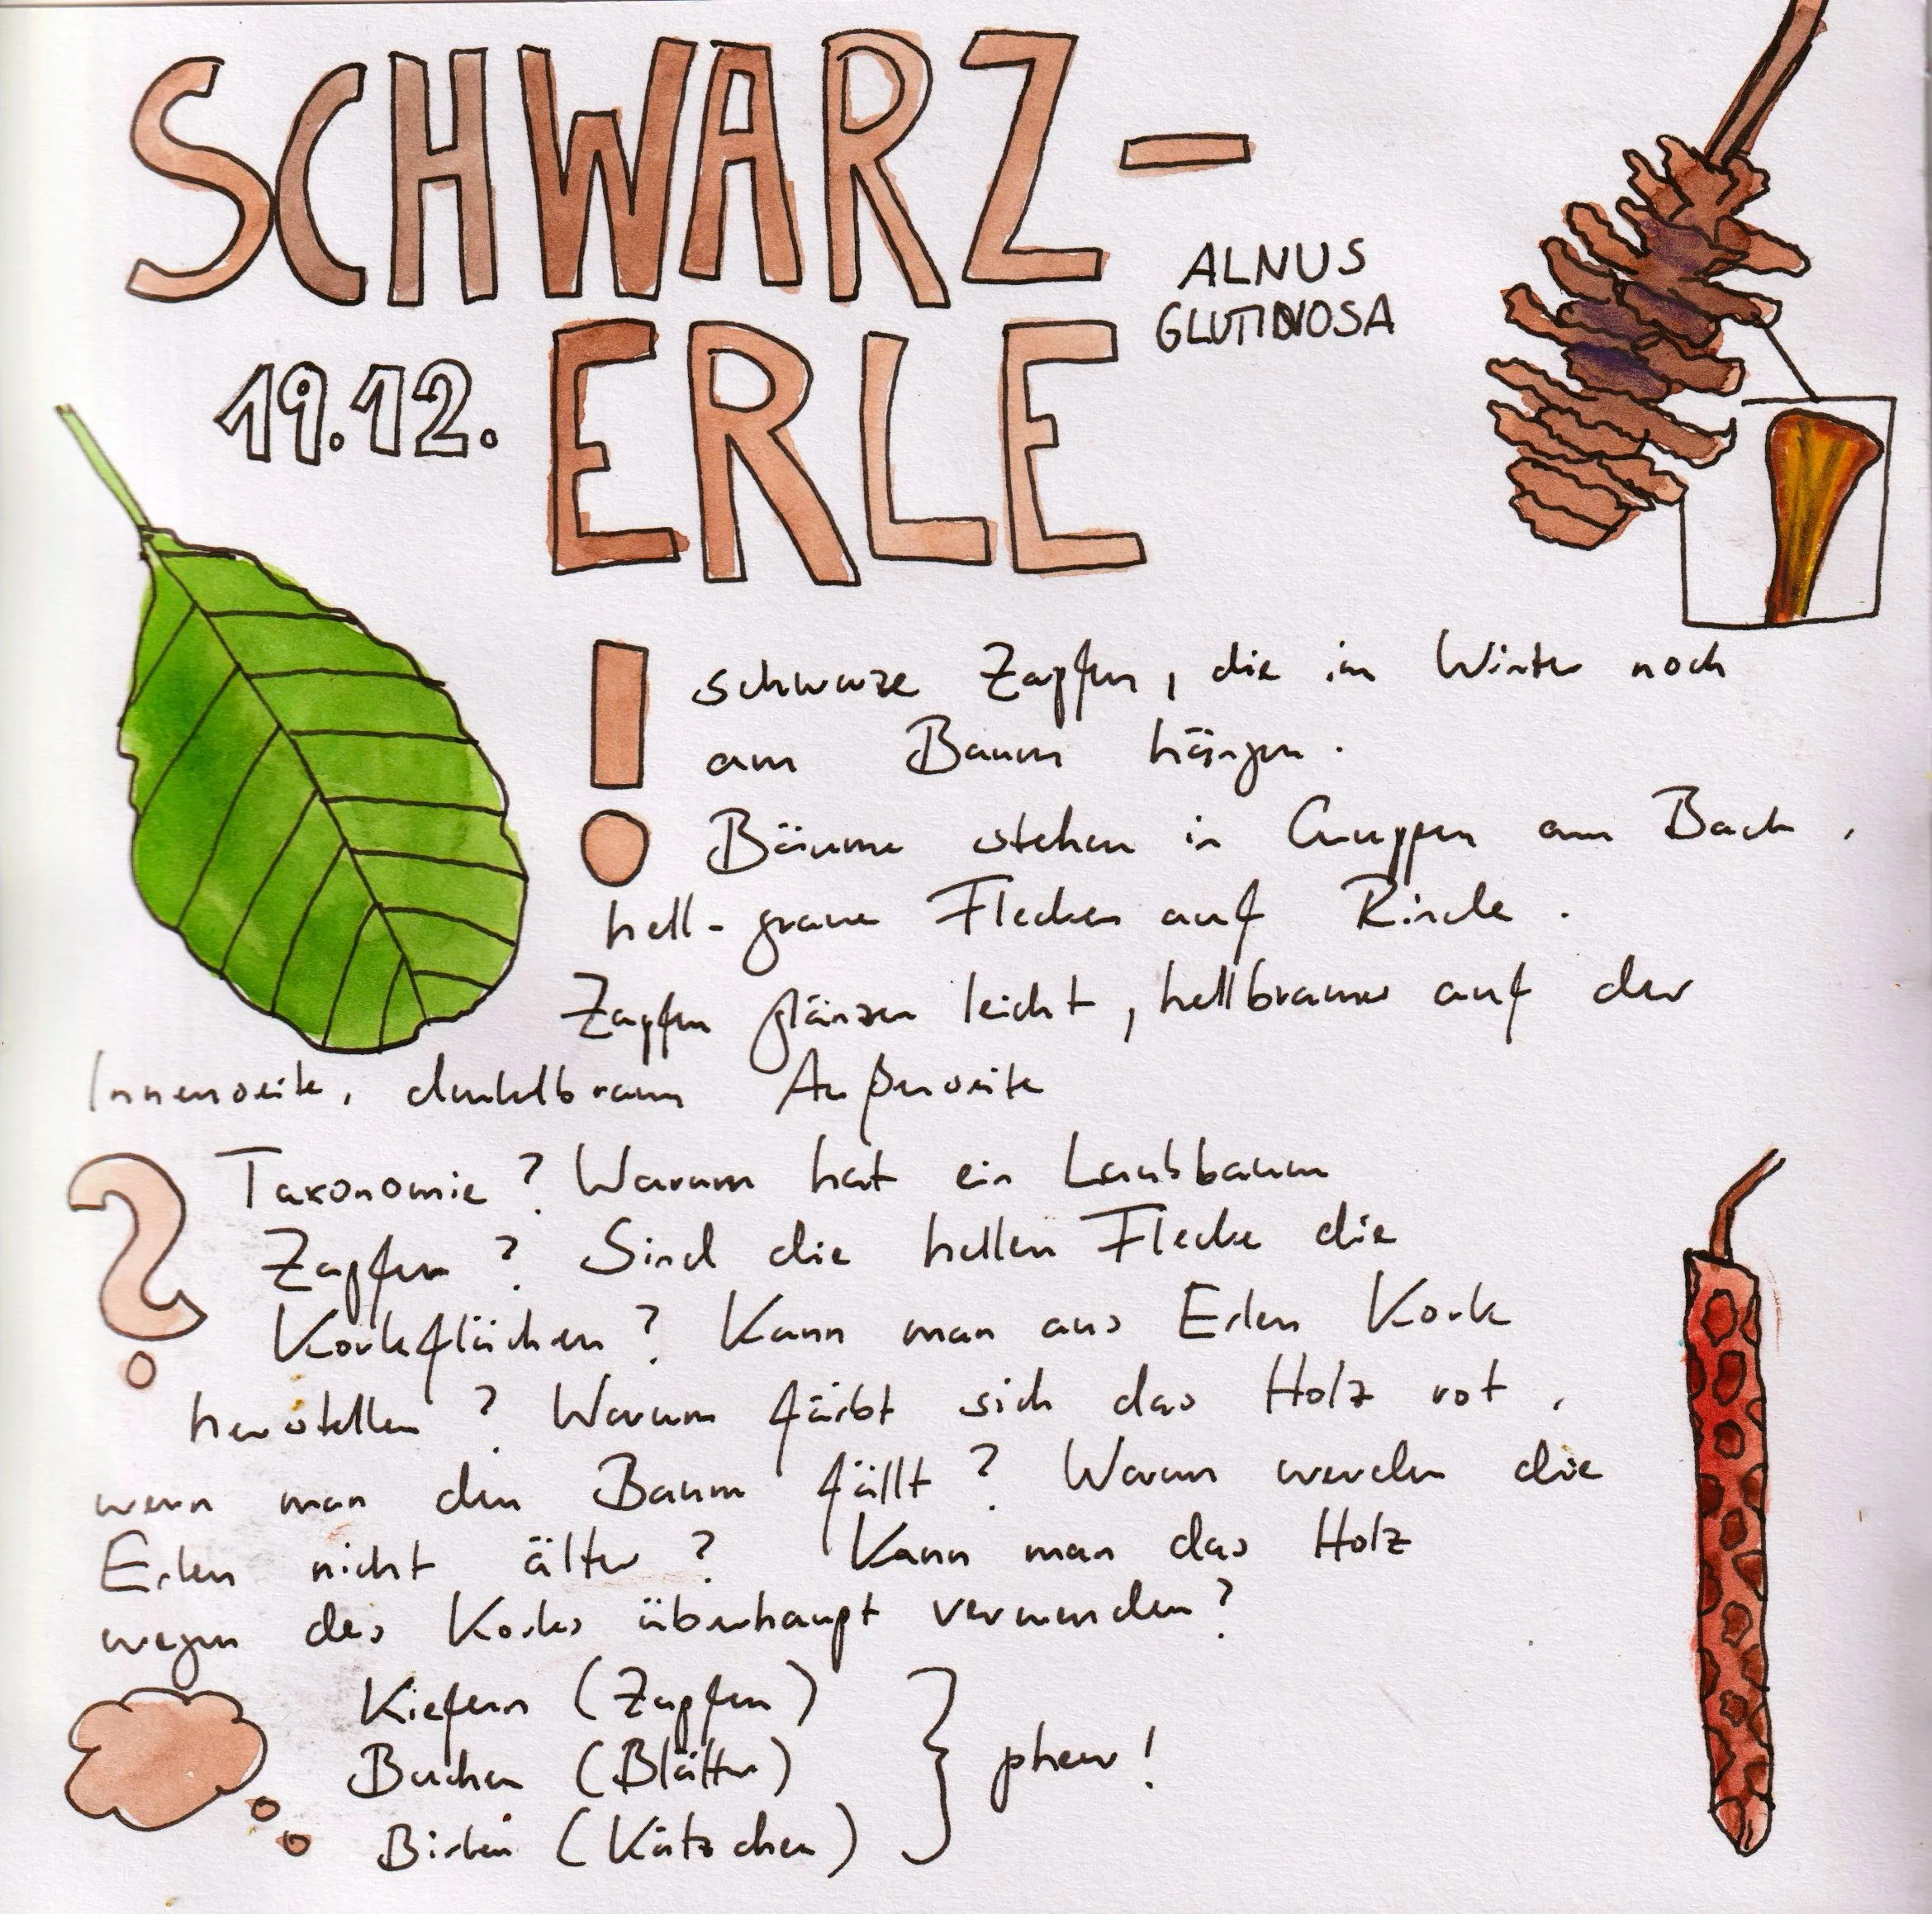 SCHWARZ-
ERLE
ALNUS
GLUTINOSA
19.12.
! schwarze Zapfen, die im Winter noch
am Baum hängen.
Bäume stehen in Gruppen am Bach,
hell-graue Flecken auf Rinde.
Zapfen glänzen leicht, hellbraun auf der
Innenseite, dunkelbraun Außenseite
? Taxonomie? Warum hat ein Laubbaum
Zapfen? Sind die hellen Flecke die
Korkflächen? Kann man aus Erlen Kork
herstellen? Warum färbt sich das Holz rot,
wenn man den Baum fällt? Warum werden die
Erlen nicht älter? Kann man das Holz
wegen des Korks überhaupt verwenden?
Kiefern (Zapfen)
Buchen (Blätter)
Birken (Kätzchen)
} phew!